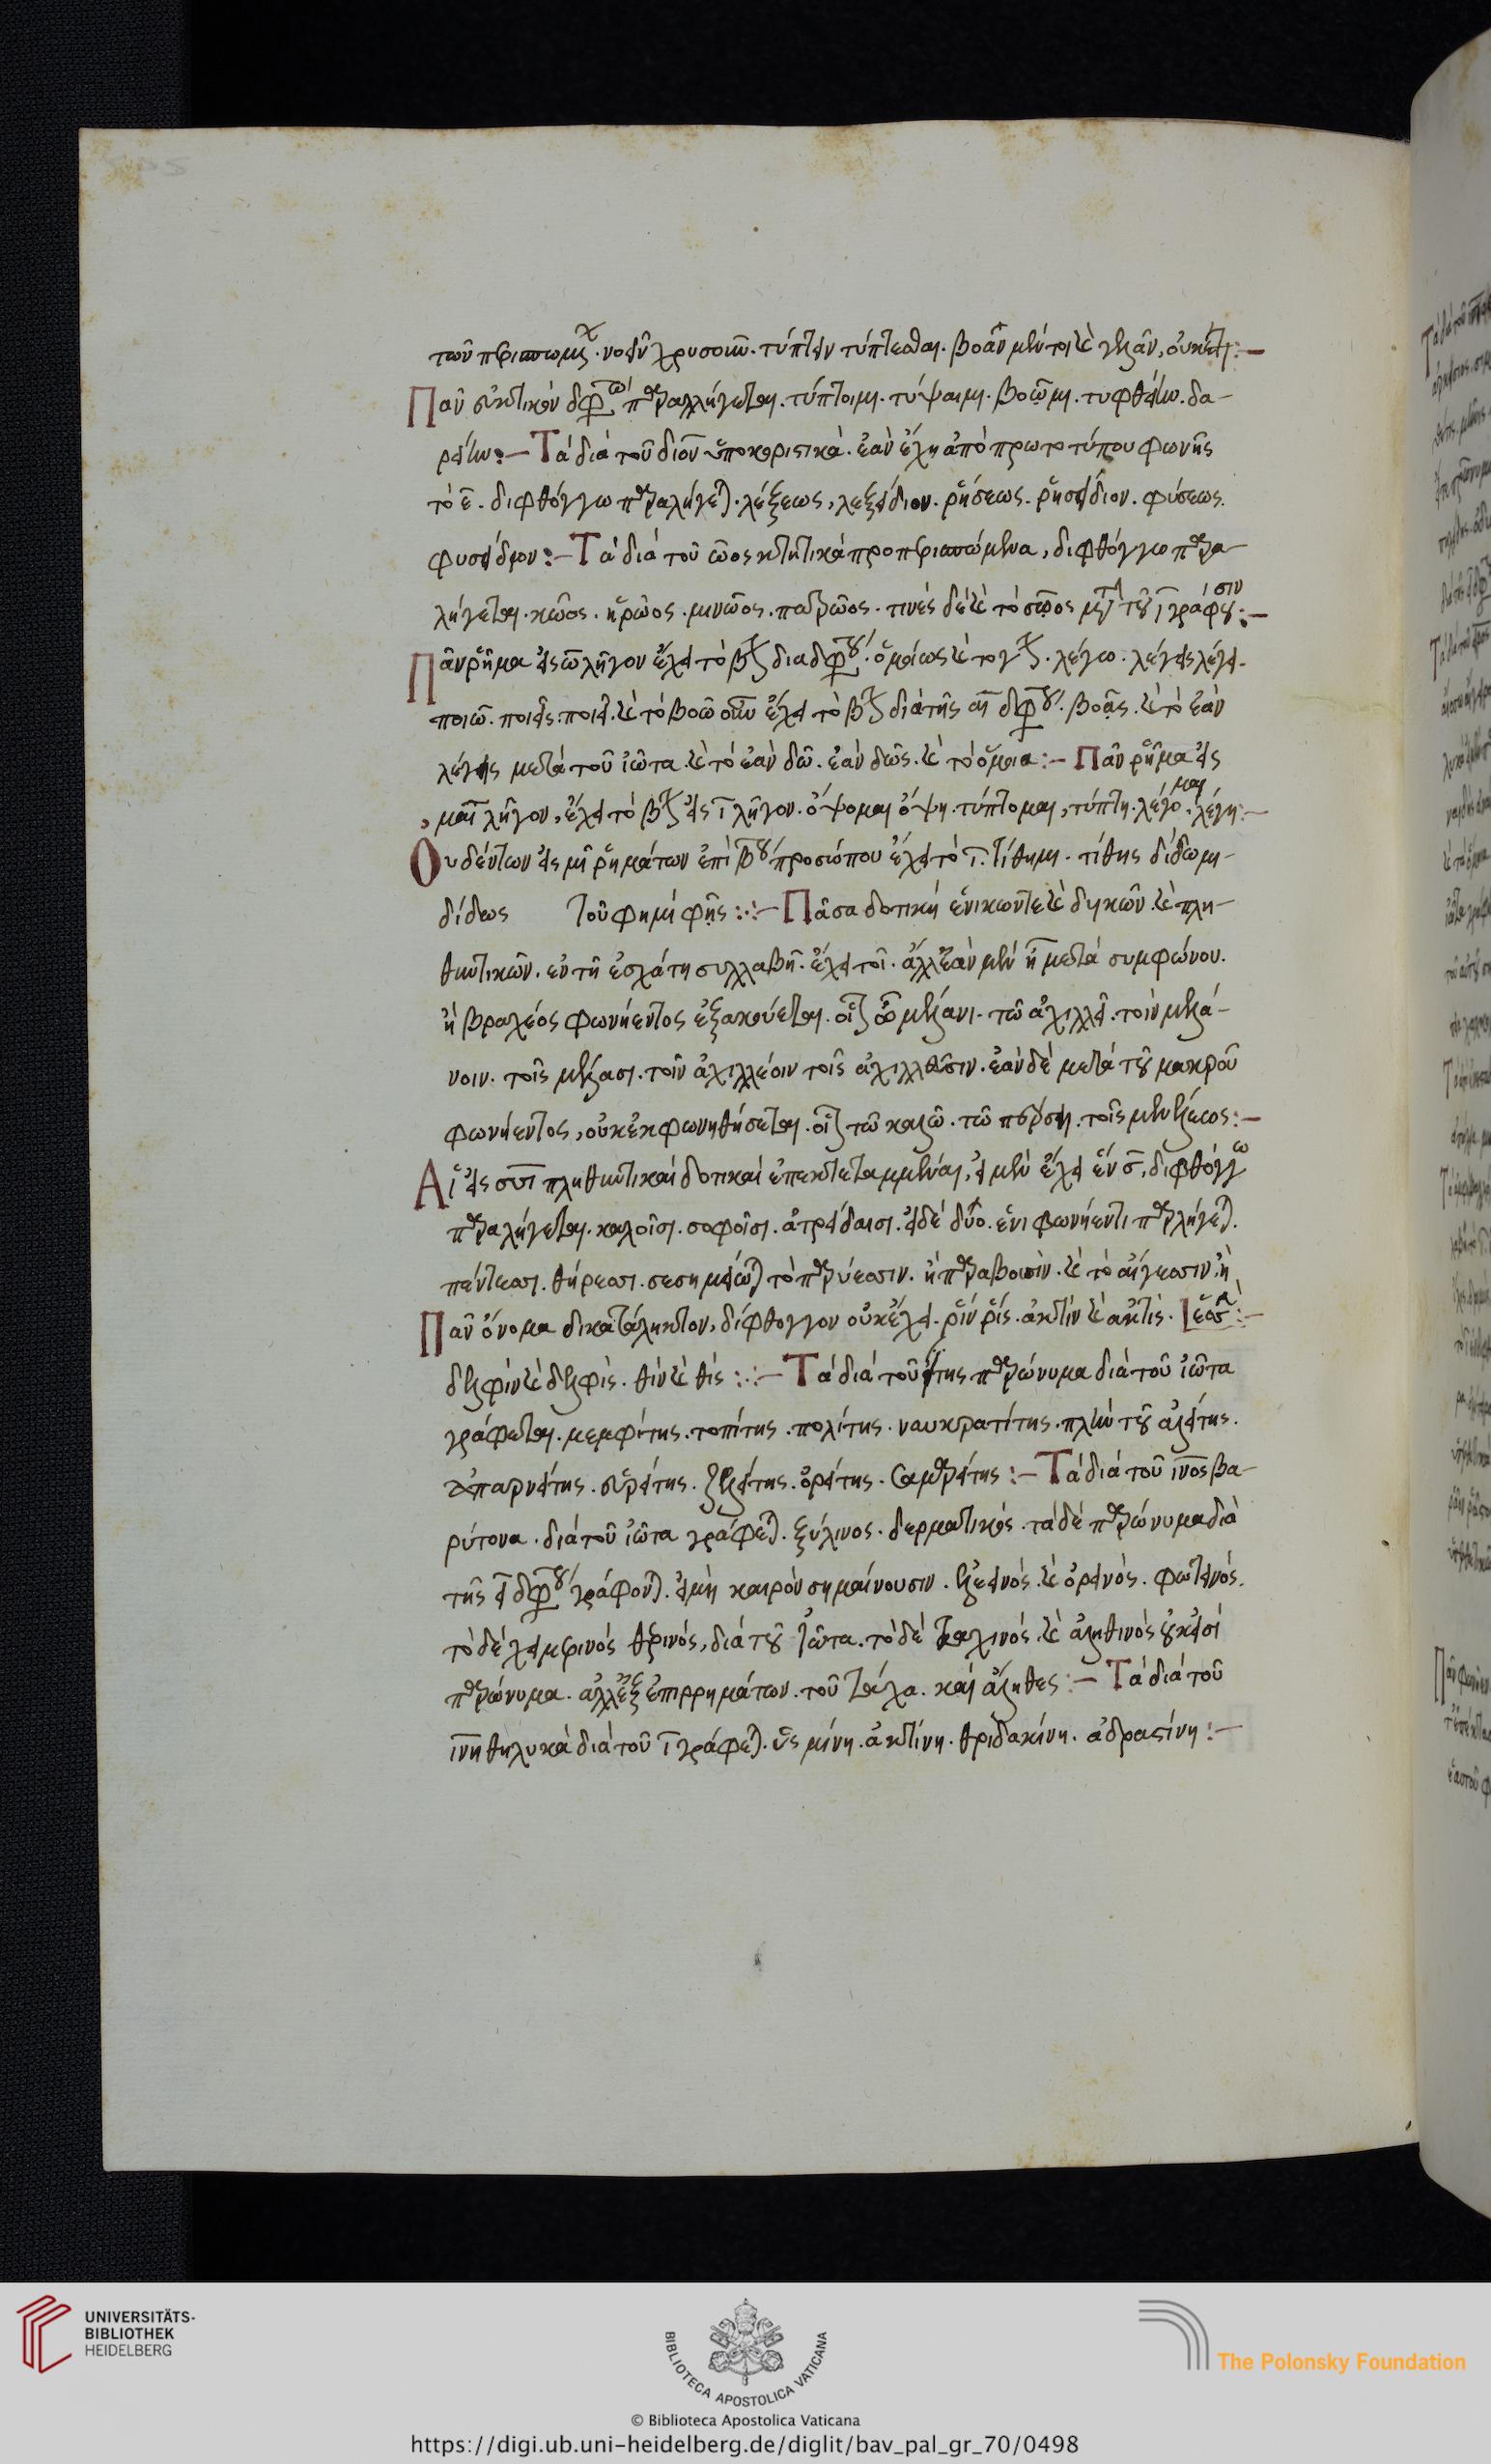 τῶν περισπωμένων. νοεῖν χρυσοῦν. τύπτειν τύπτεσθαι. βοᾶν μέντοι καὶ γελᾶν, οὐκέτι:—
Πᾶν εὐκτικὸν διφθόγγω παραλήγεται. τύπτοιμι. τύψαιμι. βοῷμι. τυφθείην. δα-
ρείην:— Τὰ διὰ τοῦ διον ὑποκοριστικὰ. ἐὰν ἔχη ἀπὸ πρωτοτύπου φωνῆς
τὸ ε̄. διφθόγγω παραλήγεται. λέξεως, λεξείδιον. ῥήσεως. ῥησείδιον. φύσεως.
φυσείδιον:— Τὰ διὰ τοῦ ῶος κτητικὰ προπερισπώμενα, διφθόγγω παρα-
λήγεται. κῶος. ἡρῶος. μινῶος. πατρῶος. τινὲς δὲ καὶ τὸ σῶος μετὰ τοῦ ῑ γράφουσιν:—
Πᾶν ῥῆμα εἰς ω̄ λῆγον ἔχει τὸ β διὰ διφθόγγου. ὁμοίως καὶ τὸ γ. λέγω. λέγεις λέγει.
ποιῶ. ποιεῖς. ποιεῖ. καὶ τὸ βοῶ ἔχει τὸ β διὰ τῆς αῑ διφθόγγου. βοᾷς. καὶ τὸ ἐὰν
λέγῃς μετὰ τοῦ ἰῶτα. καὶ τὸ ἐὰν δῶ. ἐὰν δῶς. καὶ τὰ ὅμοια:— Πᾶν ῥῆμα εἰς
μαῑ λῆγον, ἔχει τὸ β εἰς ῑ λῆγον. ὄψομαι ὄψη. τύπτομαι, τύπτη. λέγομαι. λέγη:—
Οὐδὲν τῶν εἰς μῑ ῥημάτων ἐπὶ β̄ου προσώπου ἔχει τὸ ῑ. τίθημι. τίθης δίδωμι-
δίδως τοῦ φημί φῄς:— Πᾶσα δοτικὴ ἑνικῶν τε καὶ δυικῶν. καὶ πλη-
θυντικῶν. ἐν τῆ ἐσχάτη συλλαβῆ. ἔχει τὸ ῑ. ἀλλ' ἐὰν μὲν ἦ μετὰ συμφώνου.
ἢ βραχέος φωνήεντος ἐξακούεται. οἷον τῶ μέλανι. τῶ ἀχιλλεῖ. τοῖν μελά-
νοιν. τοῖς μέλασι. τοῖν ἀχιλλέοιν τοῖς ἀχιλλεῦσιν. ἐὰν δὲ μετὰ τοῦ μακροῦ
φωνήεντος, οὐκ ἐκφωνηθήσεται. οἷον τῶ καλῶ. τῶ πέρση. τοῖς:—
Αἱ εἰς σῑ πληθυντικαὶ δοτικαὶ ἐπεκτεταμμέναι, εἰ μὲν ἔχει ἓν σ̄, διφθόγγω
παραλήγεται. καλοῖσι. σοφοῖσι. ἀτρείδαισι. εἰ δὲ δύο. ἑνὶ φωνήεντι παραλήγεται.
πάντεσσι. θήρεσσι. σεσημείωται τὸ ἢ καὶ τὸ αἴγεσσιν ἢ
Πᾶν ὄνομα δικατάληκτον, δίφθογγον οὐκ ἔχει. ῥίν ῥίς. ἀκτίν καὶ ἀκτίς.
δελφίν καὶ δελφίς. θίν καὶ θίς:— Τὰ διὰ τοῦ ίτης παρώνυμα διὰ τοῦ ἰῶτα
γράφεται. μεμφίτης. τοπίτης. πολίτης. ναυκρατίτης. πλὴν τοῦ
σπαρνείτης. ὀρείτης.:— Τὰ διὰ τοῦ ῑνος βα-
ρύτονα. διὰ τοῦ ἰῶτα γράφεται. ξύλινος. δερμάτινος. τὰ δὲ παρώνυμα διὰ
τῆς ει διφθόγγου γράφονται. εἰ μὴ καιρὸν σημαίνουσιν. ἐλεεινός. καὶ ὀρεινός. φωτεινός.
τὸ δὲ χειμερινός θερινός, διὰ τοῦ ἰῶτα. τὸ δὲ ταχινός. καὶ ἀληθινός οὐκ εἰσὶ
παρώνυμα. ἀλλ' ἐξ ἐπιρρημάτων. τοῦ τάχα. καὶ ἄληθες:— Τὰ διὰ τοῦ
ῑνη θηλυκὰ διὰ τοῦ ῑ γράφεται. ὑσμίνη. ἀκτίνη. θριδακίνη. ἀδραστίνη:—
UNIVERSITÄTS-
BIBLIOTHEK
HEIDELBERG
BIBLIOTECA APOSTOLICA VATICANA
The Polonsky Foundation
© Biblioteca Apostolica Vaticana
https://digi.ub.uni-heidelberg.de/diglit/bav_pal_gr_70/0498